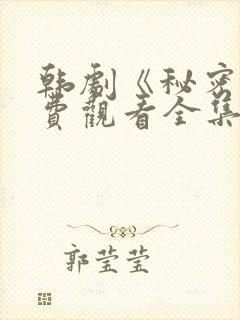 韩剧《秘密
费觀看全集
郭莹莹